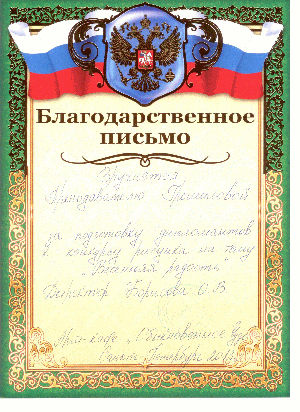 Благодарственное
письмо
Вручается
Преподавателю
за подготовку дипломантов
к конкурсу рисунка на тему
"Весенняя радость"
Директор Борисова О.В.
Арт-кафе "Обыкновенное
Санкт-Петербург